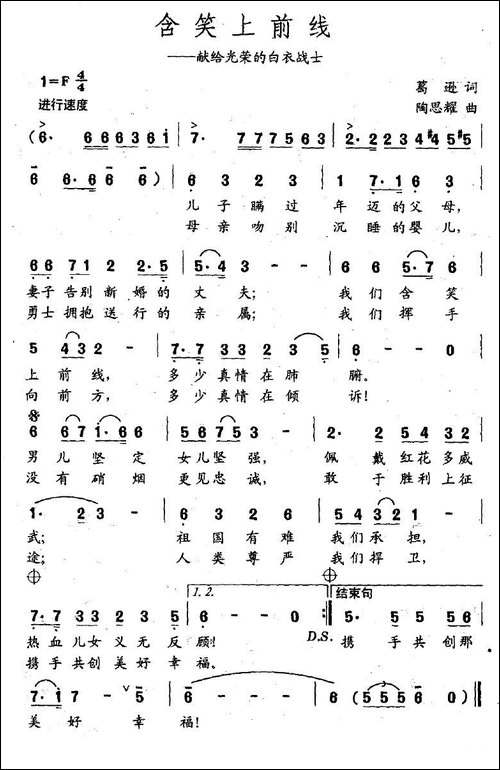 含笑上前线
——献给光荣的白衣战士
1=F 4/4
葛逊 词
进行速度
陶思耀 曲
(6· 6 6 6 3 6 i | 7· 7 7 7 5 6 3 | 2· 2 2 3 4 #4 5 #5 |
6 6·6 6) | 6 3 2 3 | 1 7·1 6 3 |
儿子瞒过 年迈的父母,
母亲吻别 沉睡的婴儿,
6 6 7 1 2 2·5 | 5·4 3 - - | 6 6 5·7 6 |
妻子告别新婚的丈夫; 我们含笑
勇士拥抱送行的亲属; 我们挥手
5 4 3 2 - | 7·7 2 3 2 3 5 | 6 - - 0 |
上前线, 多少真情在肺腑。
向前方, 多少真情在倾诉!
6 6 7 1·6 6 | 5 6 7 5 3 - | 2· 2 5 4 3 2 |
男儿坚定 女儿坚强, 佩戴红花多威
没有硝烟 更见忠诚, 敢于胜利上征
1· 2 3 - | 6 6 7 1 2 - | 5 4 3 2 1 - |
武; 祖国有难 我们承担,
途; 人类尊严 我们捍卫,
1. 2. 结束句
7·7 3 3 2 3 5 | 6 - - 0 :| 5· 5 5 5 6 |
热血儿女义无反顾! D.S. 携手共创那
携手共创美好幸福。
7·1 7 - 5 | 6 - - - | 6 (5 5 5 6) 0 |
美好 幸福!